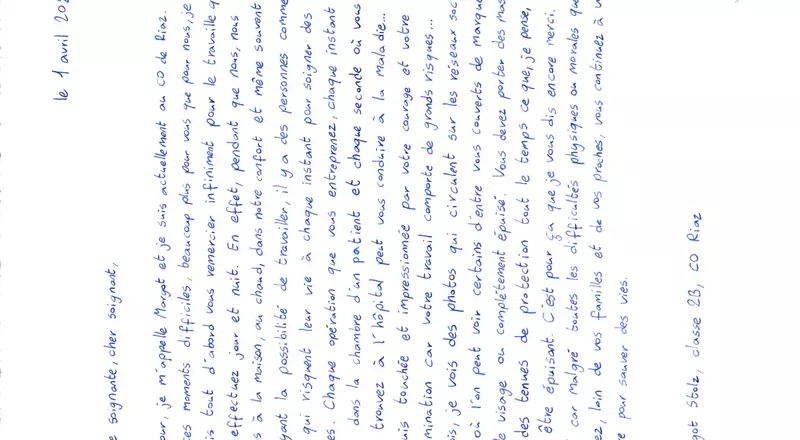 le 1 avril 202
e soignante, cher soignant,
our, je m'appelle Margot et je suis actuellement au CO de Riaz.
ces moments difficiles, beaucoup plus pour vous que pour nous, je
is tout d'abord vous remercier infiniment pour le travaille q
effectuez jour et nuit. En effet, pendant que nous, nous
s à la maison, au chaud, dans notre confort et même souvent
yant la possibilité de travailler, il y a des personnes comme
qui risquent leur vie à chaque instant pour soigner des
es. Chaque opération que vous entreprenez, chaque instant
dans la chambre d'un patient et chaque seconde où vous
trouvez à l'hôpital peut vous conduire à la maladie...
uis touchée et impressionnée par votre courage et votre
mination car votre travail comporte de grands risques...
is, je vois des photos qui circulent sur les réseaux soc
où l'on peut voir certains d'entre vous couverts de marque
e visage ou complètement épuisé. Vous devez porter des mas
des tenues de protection tout le temps ce que, je pense,
être épuisant. C'est pour ça que je vous dis encore merci.
car malgré toutes les difficultés physiques ou morales que
ez, loin de vos familles et de vos proches, vous continuez à v
e pour sauver des vies.
got Stolz, classe 2B, CO Riaz